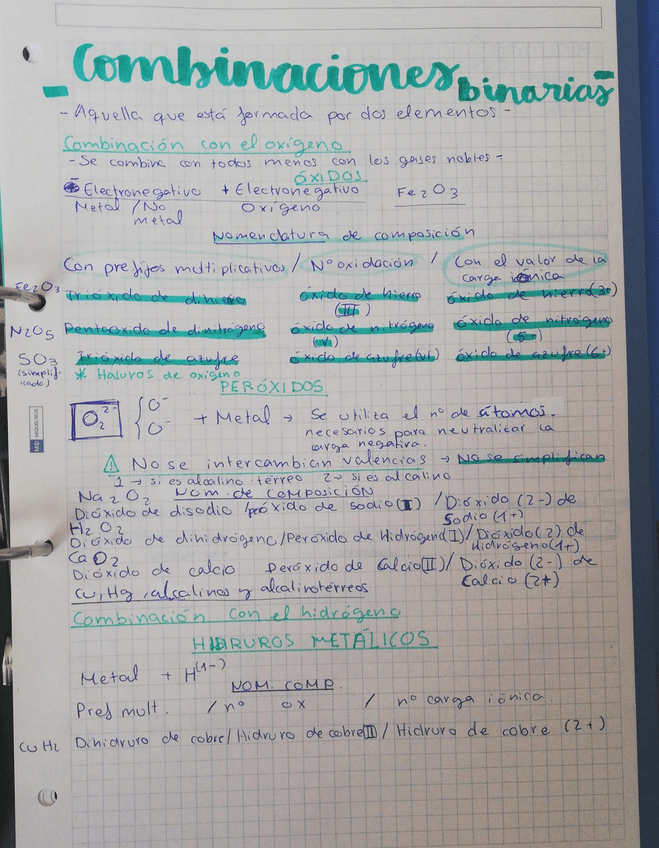 - Combinaciones binarias -
- Aquella que está formada por dos elementos -
Combinación con el oxígeno
- Se combina con todos menos con los gases nobles -
ÓXIDOS
Electronegativo + Electronegativo Fe2O3
Metal / No metal Oxígeno
Nomenclatura de composición
Con prefijos multiplicativos / Nº oxidación / Con el valor de la carga iónica
Fe2O3 Trióxido de dihierro óxido de hierro (III) óxido de hierro (3+)
N2O5 Pentaóxido de dinitrógeno óxido de nitrógeno (V) óxido de nitrógeno (5+)
SO3 (simplificado) Trióxido de azufre óxido de azufre (VI) óxido de azufre (6+)
* Haluros de oxígeno
PERÓXIDOS
O2 2- { O- O- + Metal → Se utiliza el nº de átomos
necesarios para neutralizar la
carga negativa.
⚠ No se intercambian valencias → No se simplifican
1 → si es alcalino térreo 2 → si es alcalino
Na2O2 NOM. de COMPOSICIÓN
Dióxido de disodio / peróxido de sodio (I) / Dióxido (2-) de Sodio (1+)
H2O2
Dióxido de dihidrógeno / Peróxido de Hidrógeno (I) / Dióxido (2) de Hidrógeno (1+)
CaO2
Dióxido de calcio peróxido de Calcio (II) / Dióxido (2-) de Calcio (2+)
Cu, Hg, alcalinos y alcalinotérreos
Combinación con el hidrógeno
HIDRUROS METÁLICOS
Metal + H(1-)
NOM. COMP.
Pref mult. / nº ox / nº carga iónica.
CuH2 Dihidruro de cobre / Hidruro de cobre II / Hidruro de cobre (2+)